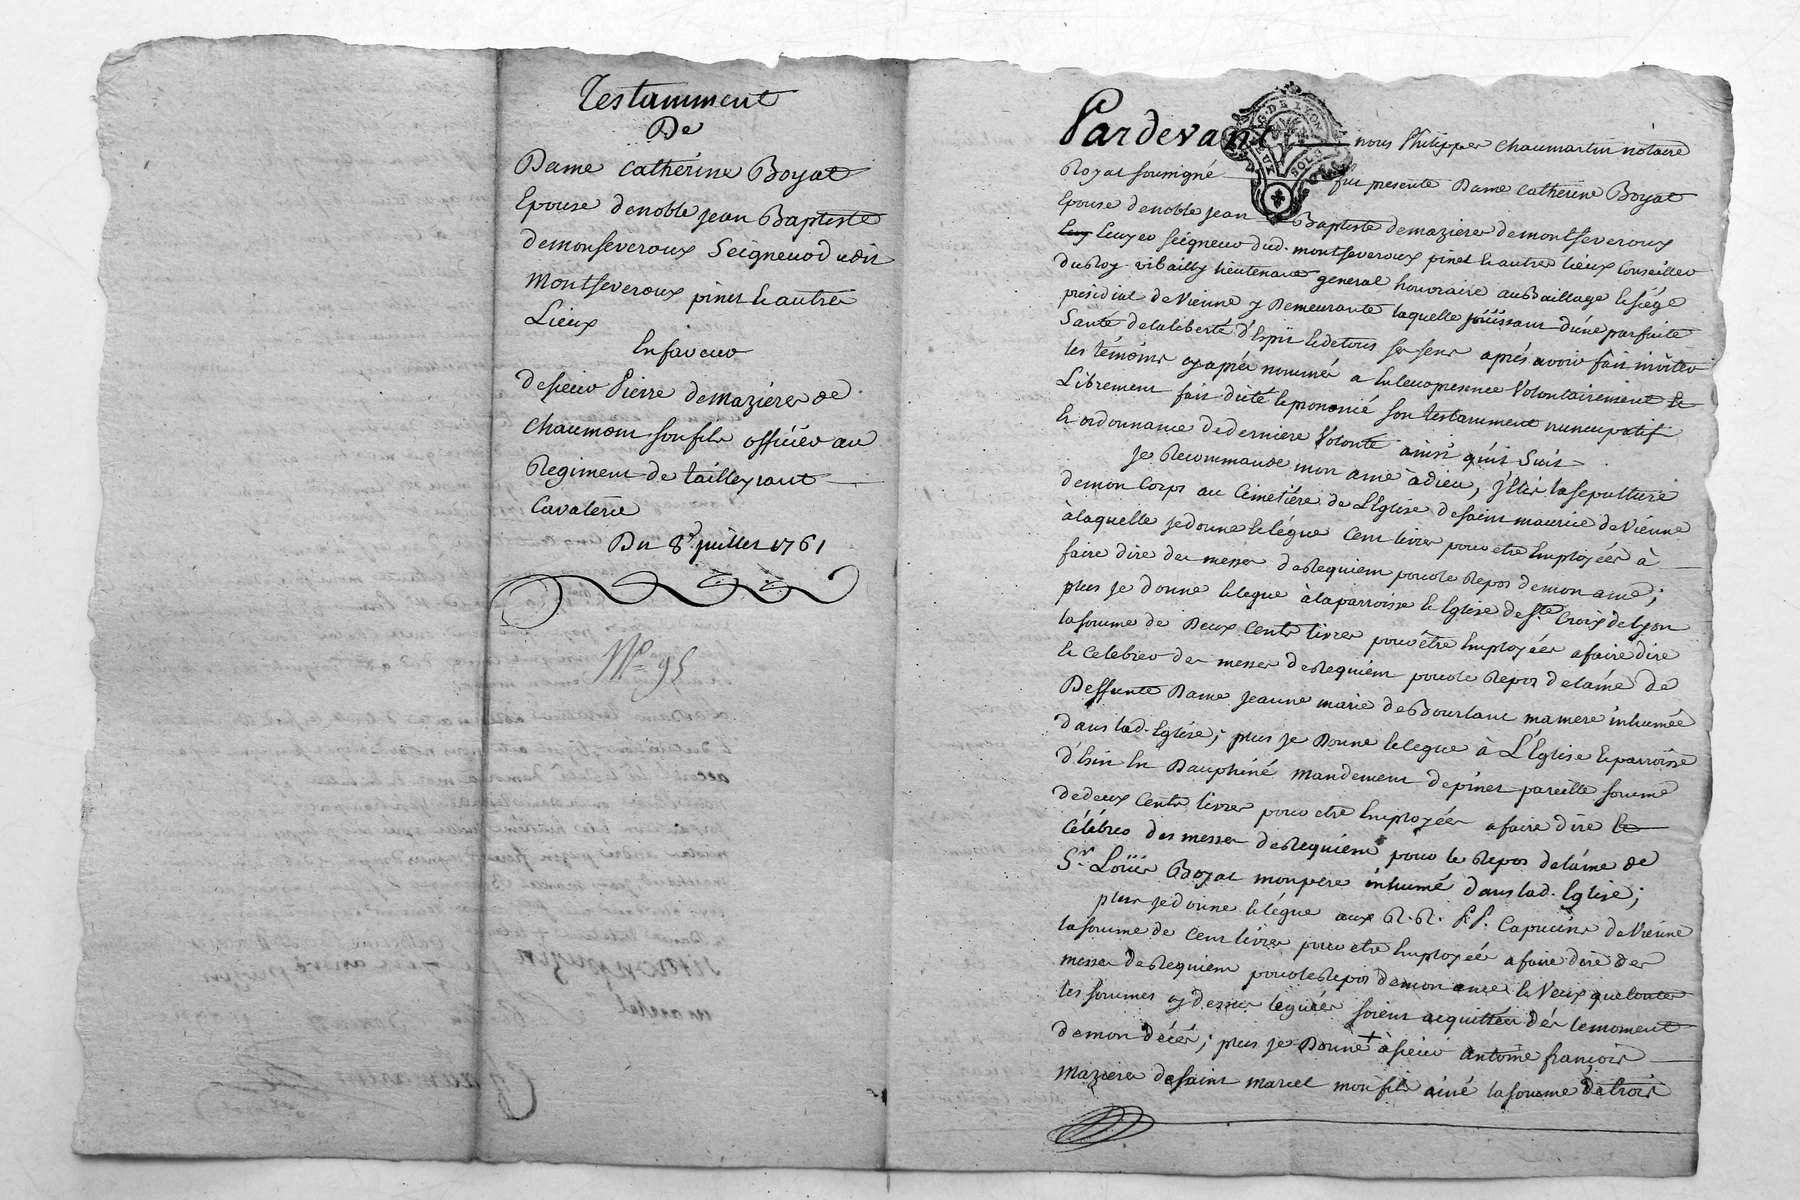 Testamment
De
Dame Catherine Boyat
Epouse de noble jean Baptiste
demonseveroux Seigneur dudit
Montseveroux pinet & autres
Lieux
En faveur
de sieur Pierre demazieres de
Chaumont son fils officier au
Regiment de tailleyrant
Cavalerie
Du 8e juillet 1761
No 95
Pardevant nous Philippes Chaumartin notaire
Royal soussigné fut presente Dame Catherine Boyat
Epouse de noble jean Baptiste demazieres demontseveroux
Ecuyer seigneur dud. montseveroux pinet & autres lieux Conseiller
du Roy vibailly lieutenant general honoraire au Baillage & siége
présidial de Vienne y Demeurante laquelle joüissant d'une parfaite
Santé de la liberté d'Esprit & de tous ses sens aprés avoir fait inviter
les témoins cy aprés nommés a en leur presence Volontairement &
Librement fait dicté & prononcé son testamment nuncupatif
& ordonnance de derniere Volonté ainsi qu'il Suit
je Recommande mon ame à dieu, j'Elis la sepulture
de mon Corps au Cimetiére de L'Eglise de saint maurice de Vienne
à laquelle je donne & légue Cent livres pour etre Employées à
faire dire des messes de Requiem pour le Repos de mon ame;
plus je donne & legue à la parroisse & Eglise de Ste Croix de Lyon
la somme de Deux Cents livres pour être Employées a faire dire
& Celebrer des messes de Requiem pour le Repos de l'áme de
Deffunte Dame jeanne marie de Bourlanc ma mere inhumée
dans lad. Eglise; plus je Donne & legue à L'Eglise & parroisse
d'Esin En Dauphiné mandement de pinet pareille somme
de deux Cents livres pour etre Employées a faire dire &
Célébrer des messes de Requiem pour le Repos de l'áme de
Sr. Loüis Boyat mon pere inhumé dans lad. Eglise;
plus je donne & légue aux R.R. P.P. Capucins de Vienne
la somme de Cent livres pour etre Employée a faire dire des
messes de Requiem pour le Repos de mon ame & Veux que toutes
les sommes cy dessus leguées soient acquittées dés le moment
de mon décés; plus je Donne + à sieur antoine françois
Mazieres de saint marcel mon fils ainé la somme de trois